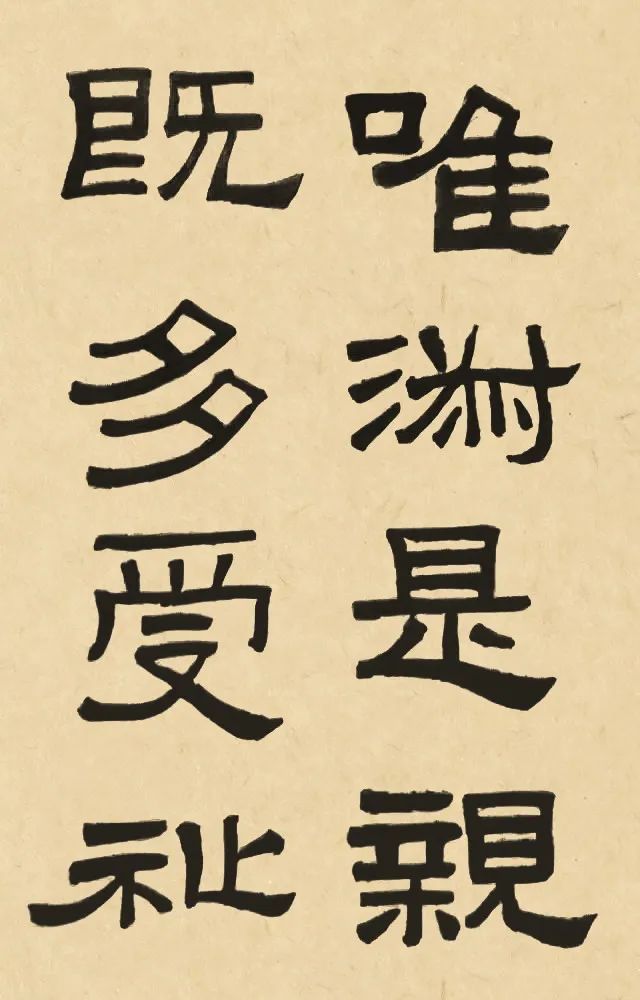 唯淑是親
既多受祉